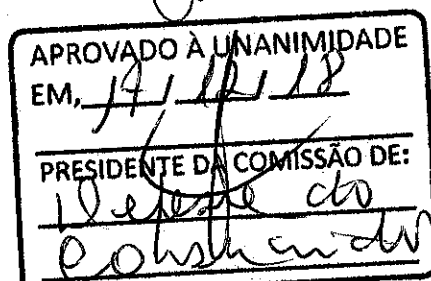 APROVADO À UNANIMIDADE
EM, 17/12/18
PRESIDENTE DA COMISSÃO DE:
Defesa do
Consumidor